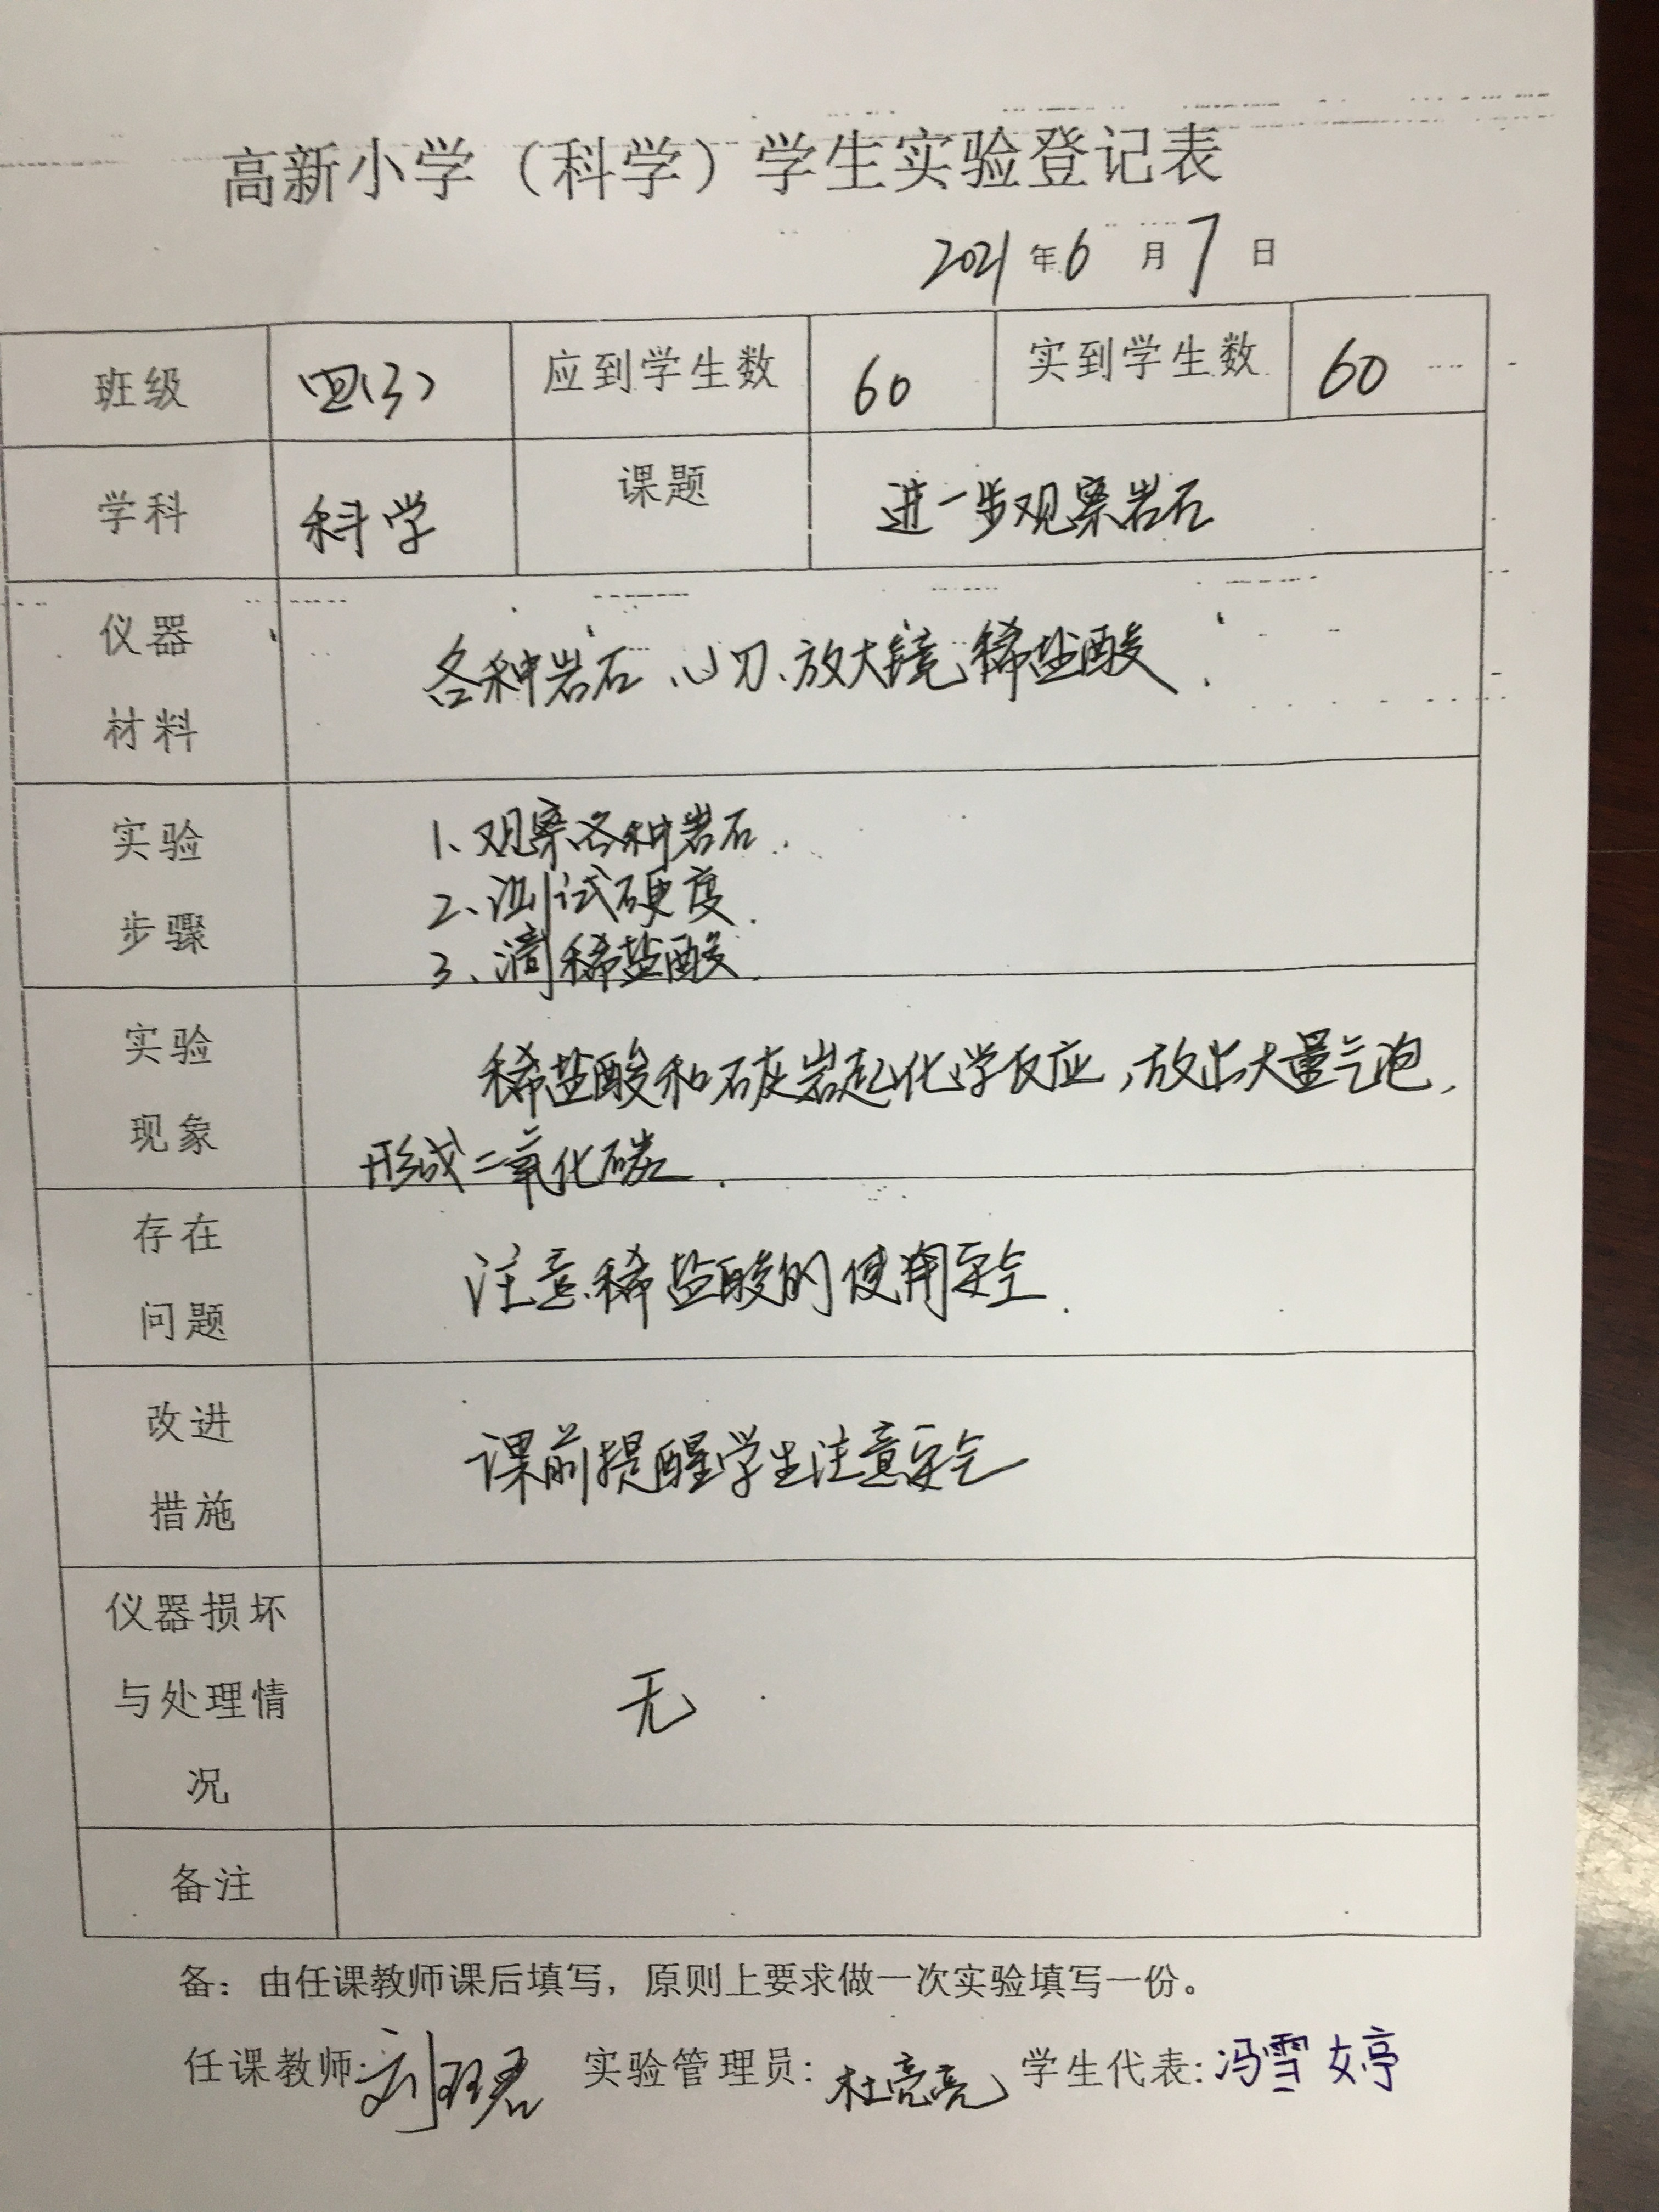 高新小学（科学）学生实验登记表
2021年6月7日
班级 四(3) 应到学生数 60 实到学生数 60
学科 科学 课题 进一步观察岩石
仪器
材料
各种岩石、小刀、放大镜、稀盐酸
实验
步骤
1、观察各种岩石.
2、测试硬度.
3、滴稀盐酸.
实验
现象
稀盐酸和石灰岩起化学反应,放出大量气泡,
形成二氧化碳.
存在
问题
注意稀盐酸的使用安全.
改进
措施
课前提醒学生注意安全
仪器损坏
与处理情
况
无
备注
备：由任课教师课后填写，原则上要求做一次实验填写一份。
任课教师: 刘 君 实验管理员: 杜亮亮 学生代表: 冯雪婷